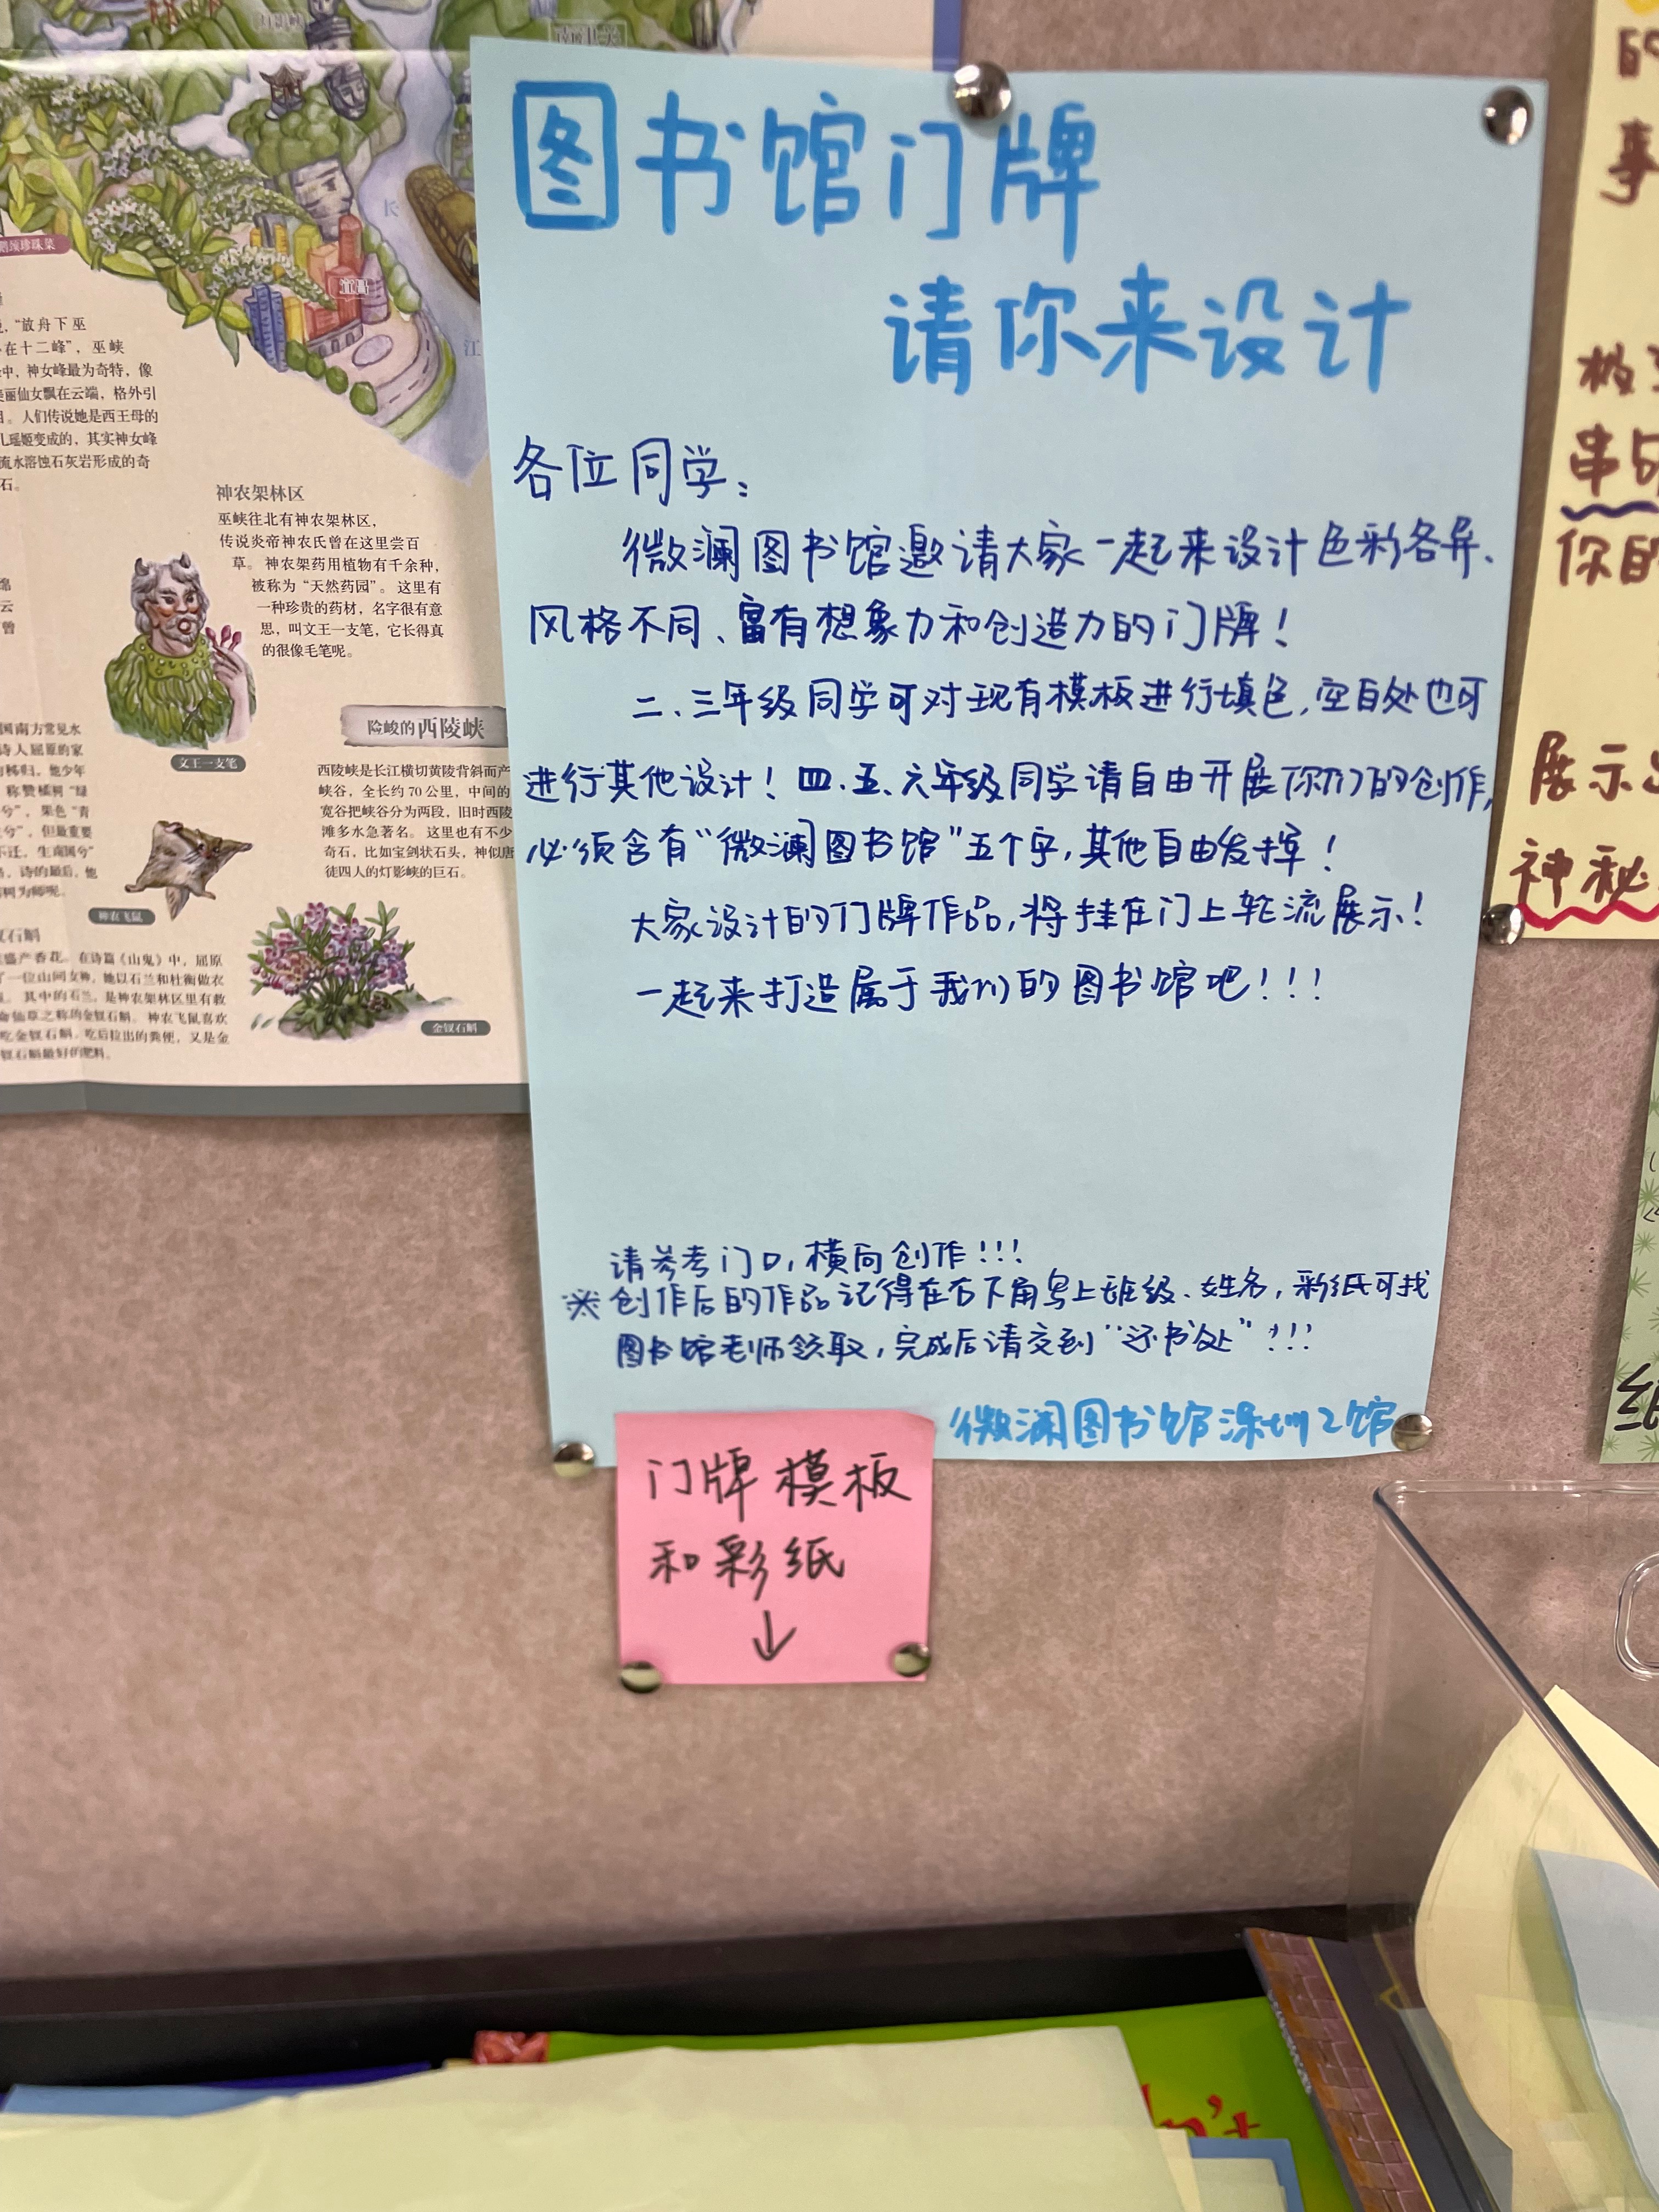 图书馆门牌
请你来设计
各位同学：
微澜图书馆邀请大家一起来设计色彩各异、
风格不同、富有想象力和创造力的门牌！
二、三年级同学可对现有模板进行填色，空白处也可
进行其他设计！四、五、六年级同学请自由开展你们的创作，
必须含有“微澜图书馆”五个字，其他自由发挥！
大家设计的门牌作品，将挂在门上轮流展示！
一起来打造属于我们的图书馆吧！！！
请参考门口，横向创作！！！
※创作后的作品记得在右下角写上班级、姓名，彩纸可找
图书馆老师领取，完成后请交到“还书处”！！！
微澜图书馆深圳2馆
门牌模板
和彩纸
↓
南津关
长
江
宜昌
“放舟下巫
在十二峰”，巫峡
中，神女峰最为奇特，像
美丽仙女飘在云端，格外引
。人们传说她是西王母的
儿瑶姬变成的，其实神女峰
流水溶蚀石灰岩形成的奇
石。
神农架林区
巫峡往北有神农架林区，
传说炎帝神农氏曾在这里尝百
草。神农架药用植物有千余种，
被称为“天然药园”。这里有
一种珍贵的药材，名字很有意
思，叫文王一支笔，它长得真
的很像毛笔呢。
文王一支笔
险峻的西陵峡
西陵峡是长江横切黄陵背斜而产
峡谷，全长约70公里，中间的
宽谷把峡谷分为两段，旧时西陵
滩多水急著名。这里也有不少
奇石，比如宝剑状石头，神似唐
徒四人的灯影峡的巨石。
国南方常见水
诗人屈原的家
秭归，他少年
称赞橘树“绿
兮”，果色“青
兮”，但最重要
不迁，生南国兮”
，诗的最后，他
树为师呢。
神农飞鼠
石斛
盛产香花。在诗篇《山鬼》中，屈原
了一位山间女神，她以石兰和杜衡做衣
。其中的石兰，是神农架林区里有救
命仙草之称的金钗石斛。神农飞鼠喜欢
吃金钗石斛，吃后拉出的粪便，又是金
钗石斛最好的肥料。
金钗石斛
的
事
串
你的
展示
神秘
纸